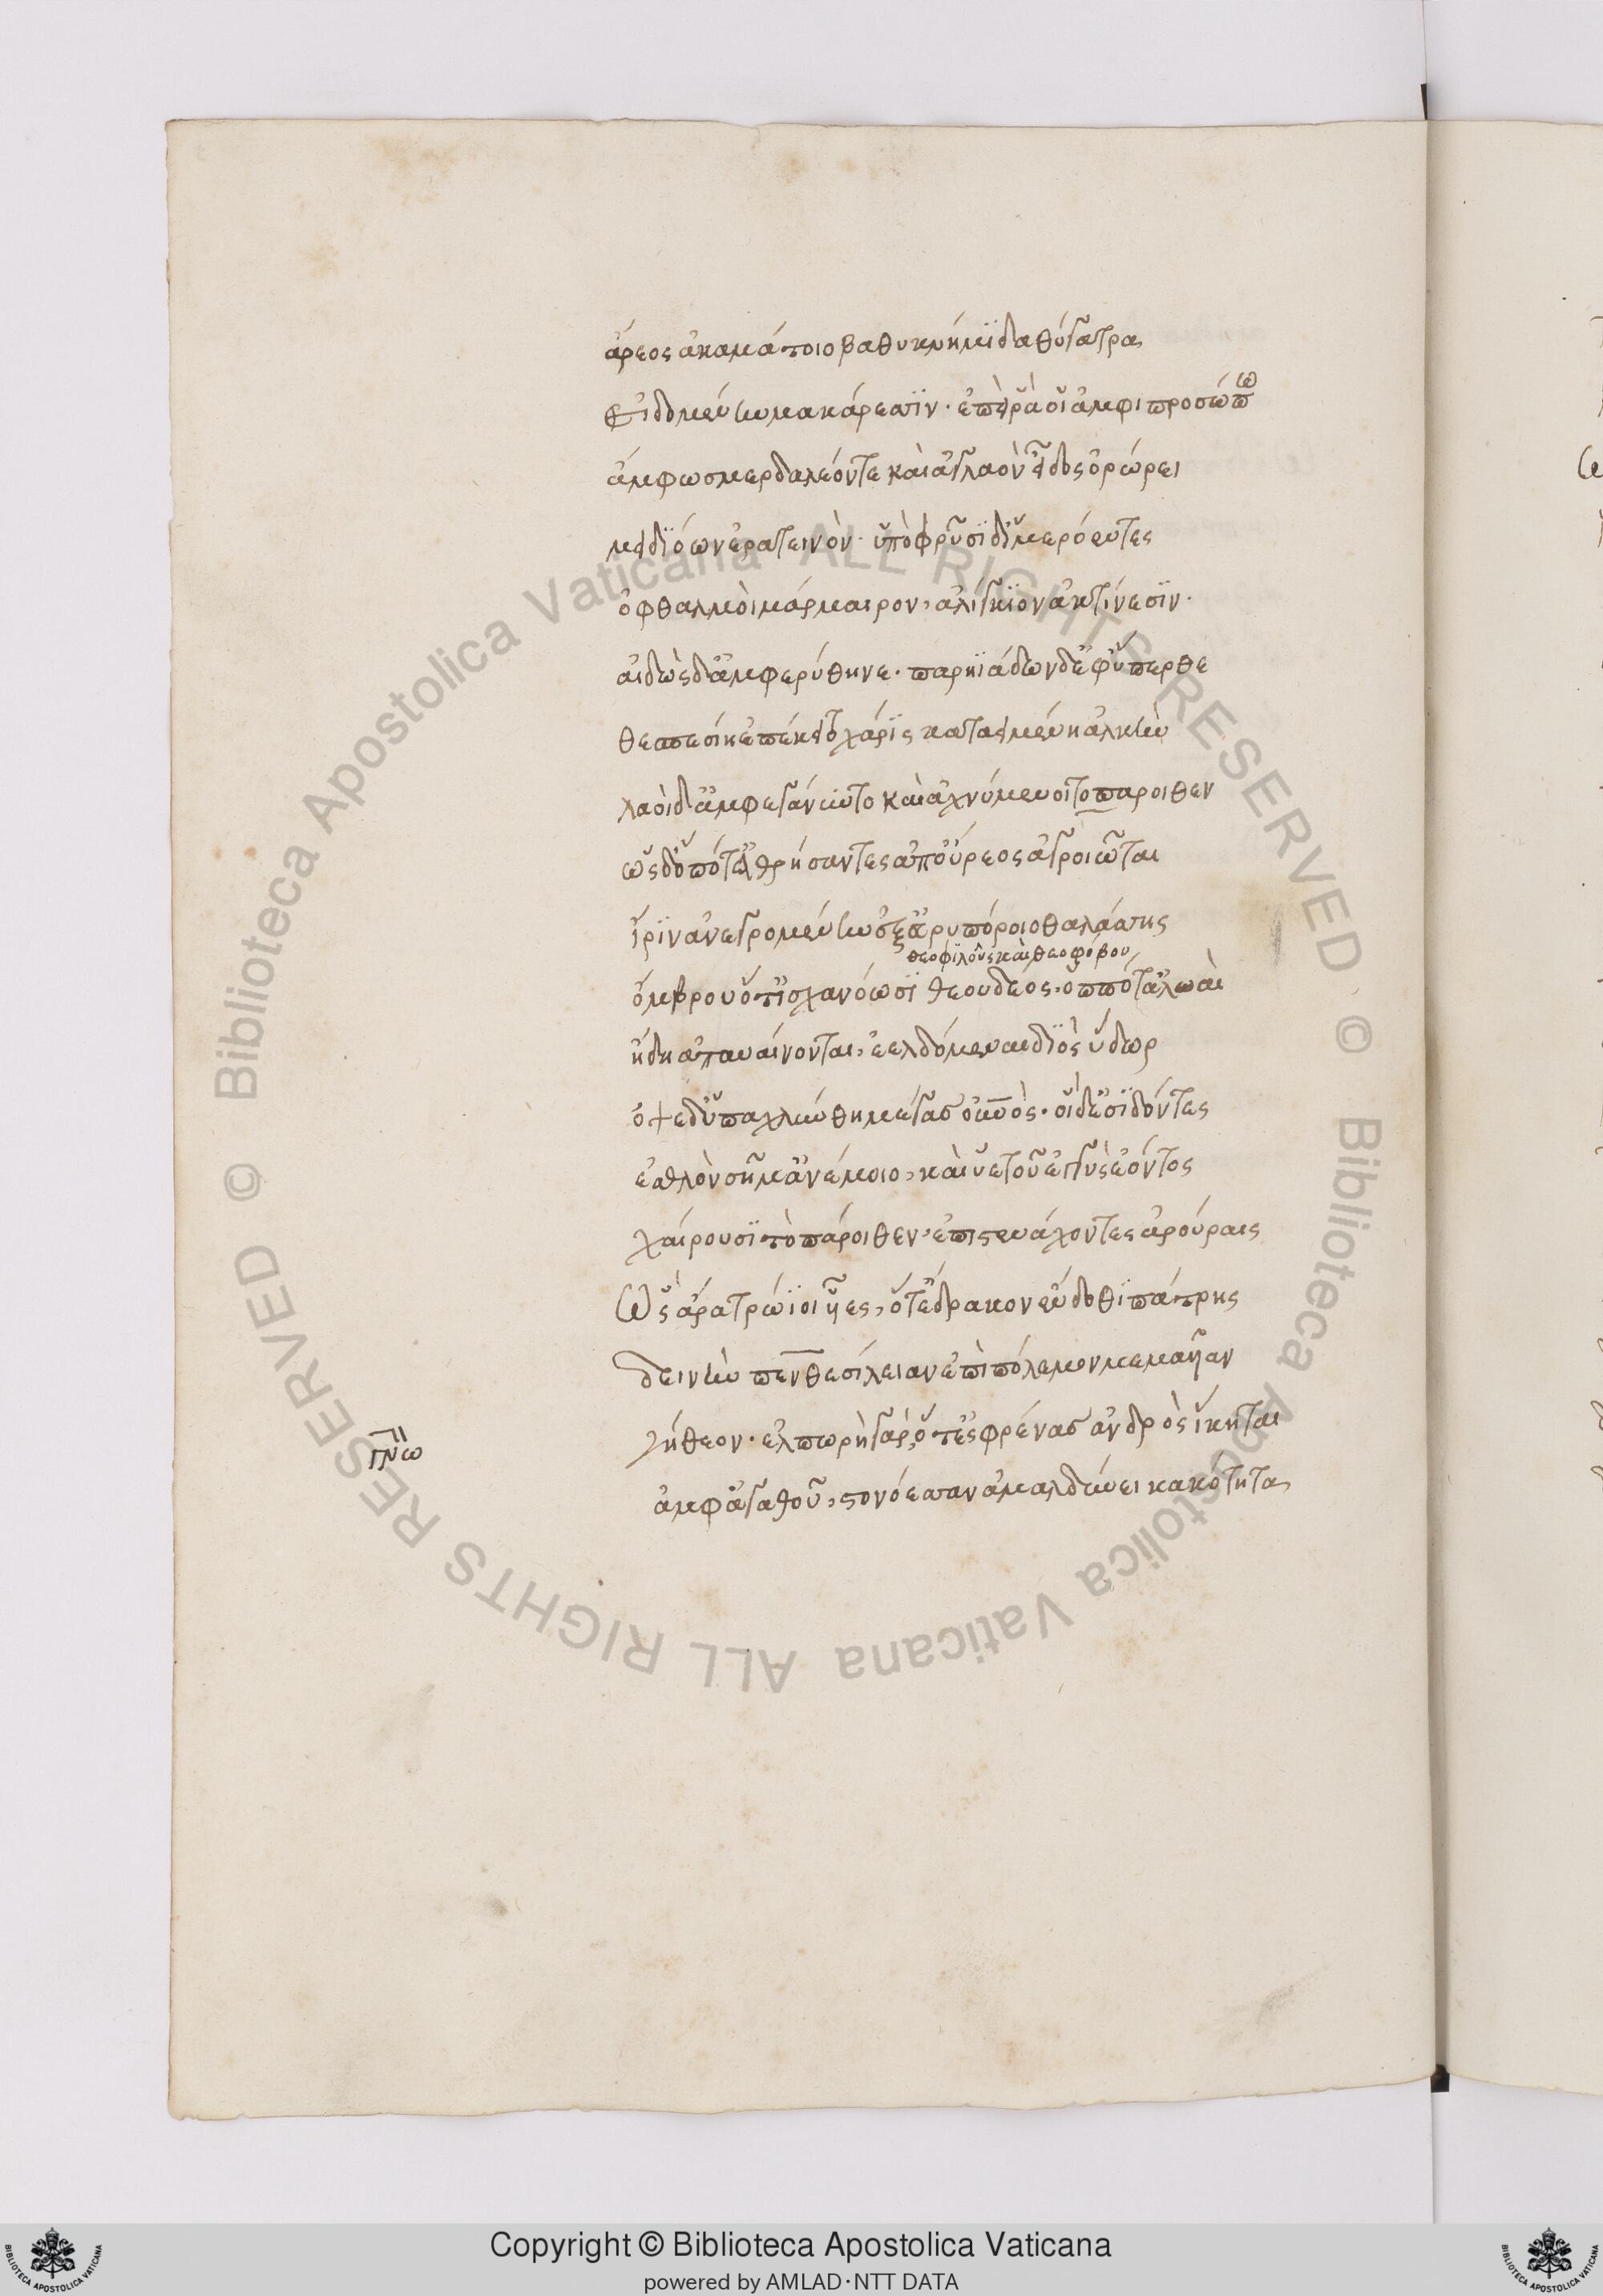 ἄρεος ἀκαμάτοιο βαθυκνήμιδα θύγατρα
εἰδομένην μακάρεσσιν· ἐπεὶ ῥά οἱ ἀμφὶ προσώπω
ἄμφω σμερδαλέον τε καὶ ἀγλαὸν εἶδος ὀρώρει
μειδιόων ἐρατεινὸν· ὑπὸ φρῦσι δ' ἱμερόεντες
ὀφθαλμοὶ μάρμαιρον, ἀλίγκιον ἀκτίνεσιν·
αἰδὼς δ' ἀμφερύθηνε· παρηϊάδων δ' ἐφύπερθε
θεσπεσίη ἐπέκειτο χάρις καταειμένη ἀλκὴν
λαοὶ δ' ἀμφεγάνυντο καὶ ἀχνύμενοι τοπαροιθεν
ὡς δ' ὁπότ' ἀθρήσαντες ἀπ' οὔρεος ἀγροιῶται
ἶριν ἀνεγρομένην ἐξ εὐρυπόροιο θαλάσσης
θεοφιλοῦς καὶ θεοφόβου
ὄμβρου ὅτ' ἰσχανόωσι θεουδεος, ὁππότ' ἀλωαὶ
ἤδη ἀπαυαίνονται, ἐελδόμεναι διὸς ὕδωρ
ὀψὲ δ' ὑπαχλύνθη μέγας οὐνὸς· οἱ δ' ἐσιδόντες
ἐσθλὸν σῆμ' ἀνέμοιο, καὶ ὑετοῦ ἐγγὺς ἐόντος
χαίρουσι τὸ πάροιθεν, ἐπιστενάχοντες ἀρούραις
Ὣς ἄρα τρώϊοι υἷες, ὅτ' ἔδρακον ἔνδοθι πάτρης
δεινὴν πενθεσίλειαν ἐπὶ πόλεμον μεμαυῖαν
γήθεον· ἐλπωρὴ γὰρ ὅτ' ἐς φρένας ἀνδρὸς ἵκηται
ἀμφ' ἀγαθοῦ, στονόεσσαν ἀμαλδύνει κακότητα